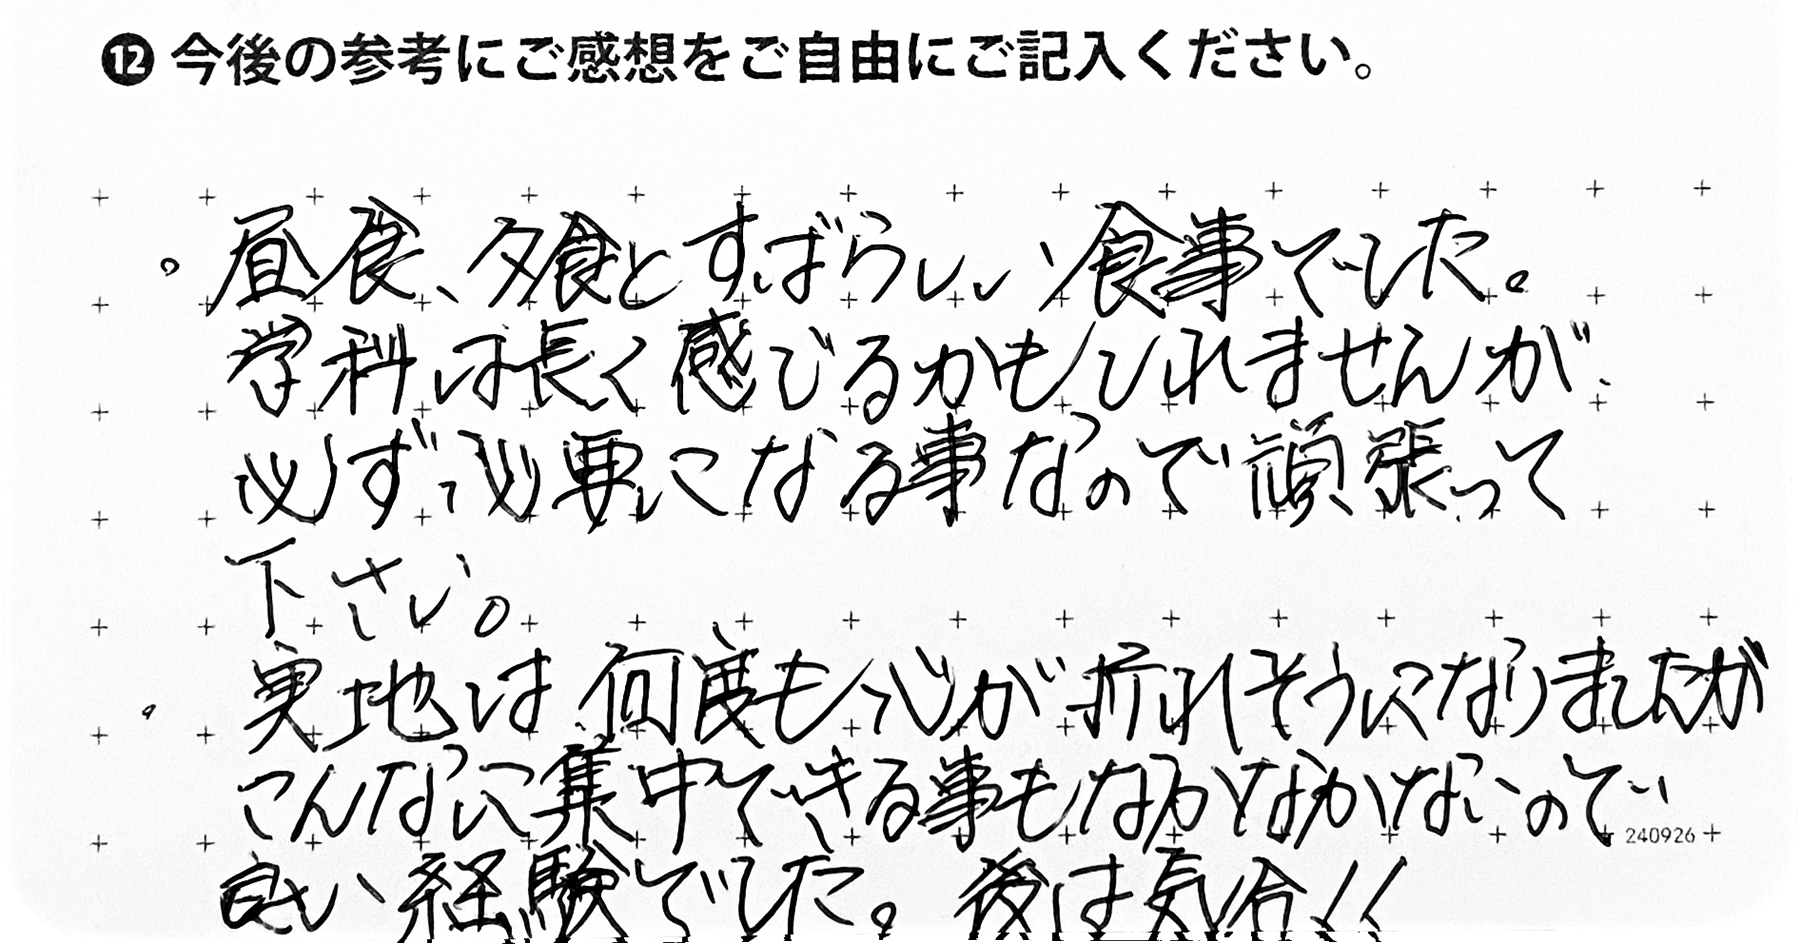 ⓬ 今後の参考にご感想をご自由にご記入ください。
。昼食、夕食とすばらしい食事でした。
学科は長く感じるかもしれませんが、
必ず必要になる事なので頑張って
下さい。
。実地は何度も心が折れそうになりましたが
こんなに集中できる事もなかなかないので
240926
良い経験でした。後は気合!!